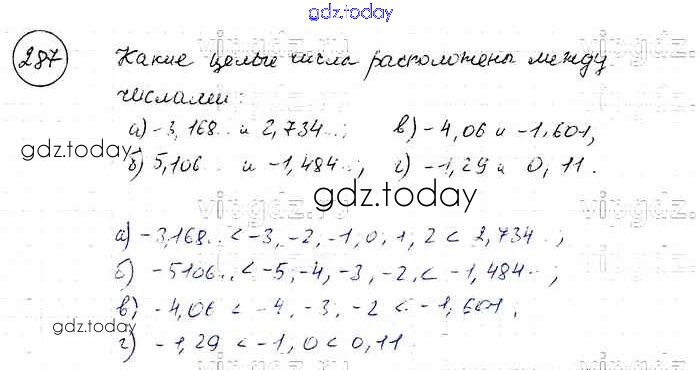 gdz.today
287 Какие целые числа расположены между
числами:
а) -3,168.. и 2,734..; в) -4,06 и -1,601,
gdz.today
б) 5,106.. и -1,484..; г) -1,29 и 0,11.
gdz.today
а) -3,168.. < -3, -2, -1, 0, 1, 2 < 2,734..;
б) -5106.. < -5, -4, -3, -2, < -1,484..;
в) -4,06 < -4, -3, -2 < -1,601,
gdz.today
г) -1,29 < -1, 0 < 0,11